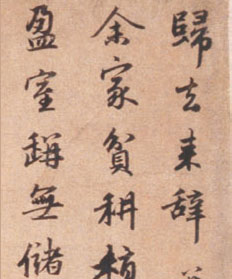 歸去来辞
余家貧耕植
盈室缾無儲